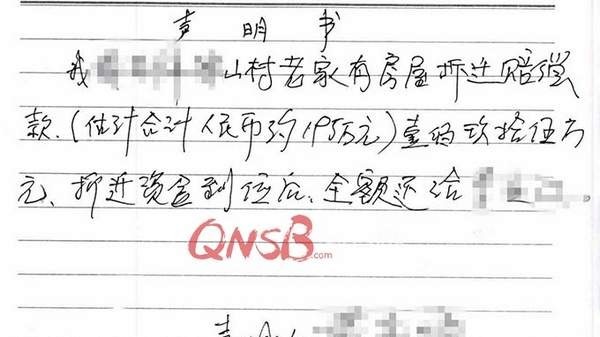 声明书
我 山村老家有房屋拆迁赔偿
款.(估计合计人民币约195万元)壹佰玖拾伍万
元、拆迁资金到位后、全额还给 。
QNSB.com
声明人